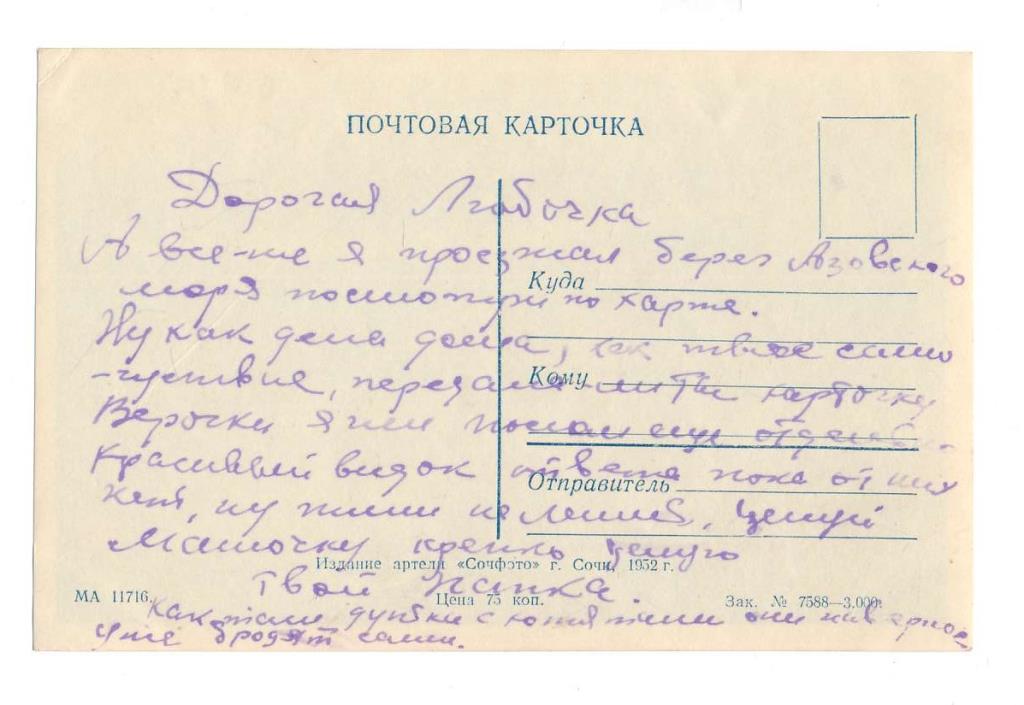 ПОЧТОВАЯ КАРТОЧКА
Дорогая Любочка
А все-же я проезжал берег Азовского
моря посмотри по карте.
Ну как дела дома, как твое само
-чуствие, передала ли ты карточку
Верочки я им послал еще отдельн
красивый видок ответа пока от них
нет, ну пиши не ленись, целуй
Мамочку крепко целую
Твой Папка.
Как там с они наверное
уже бродят сами.
Куда
Кому
Отправитель
Издание артели «Сочфото» г. Сочи, 1952 г.
МА 11716. Цена 75 коп. Зак. № 7588—3.000.